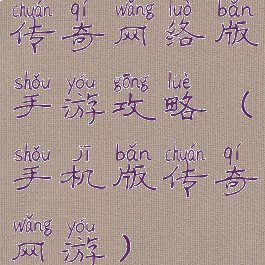 chuán qí wǎng luò bǎn
传奇网络版
shǒu yóu gōng lüè
手游攻略（
shǒu jī bǎn chuán qí
手机版传奇
wǎng yóu
网游）